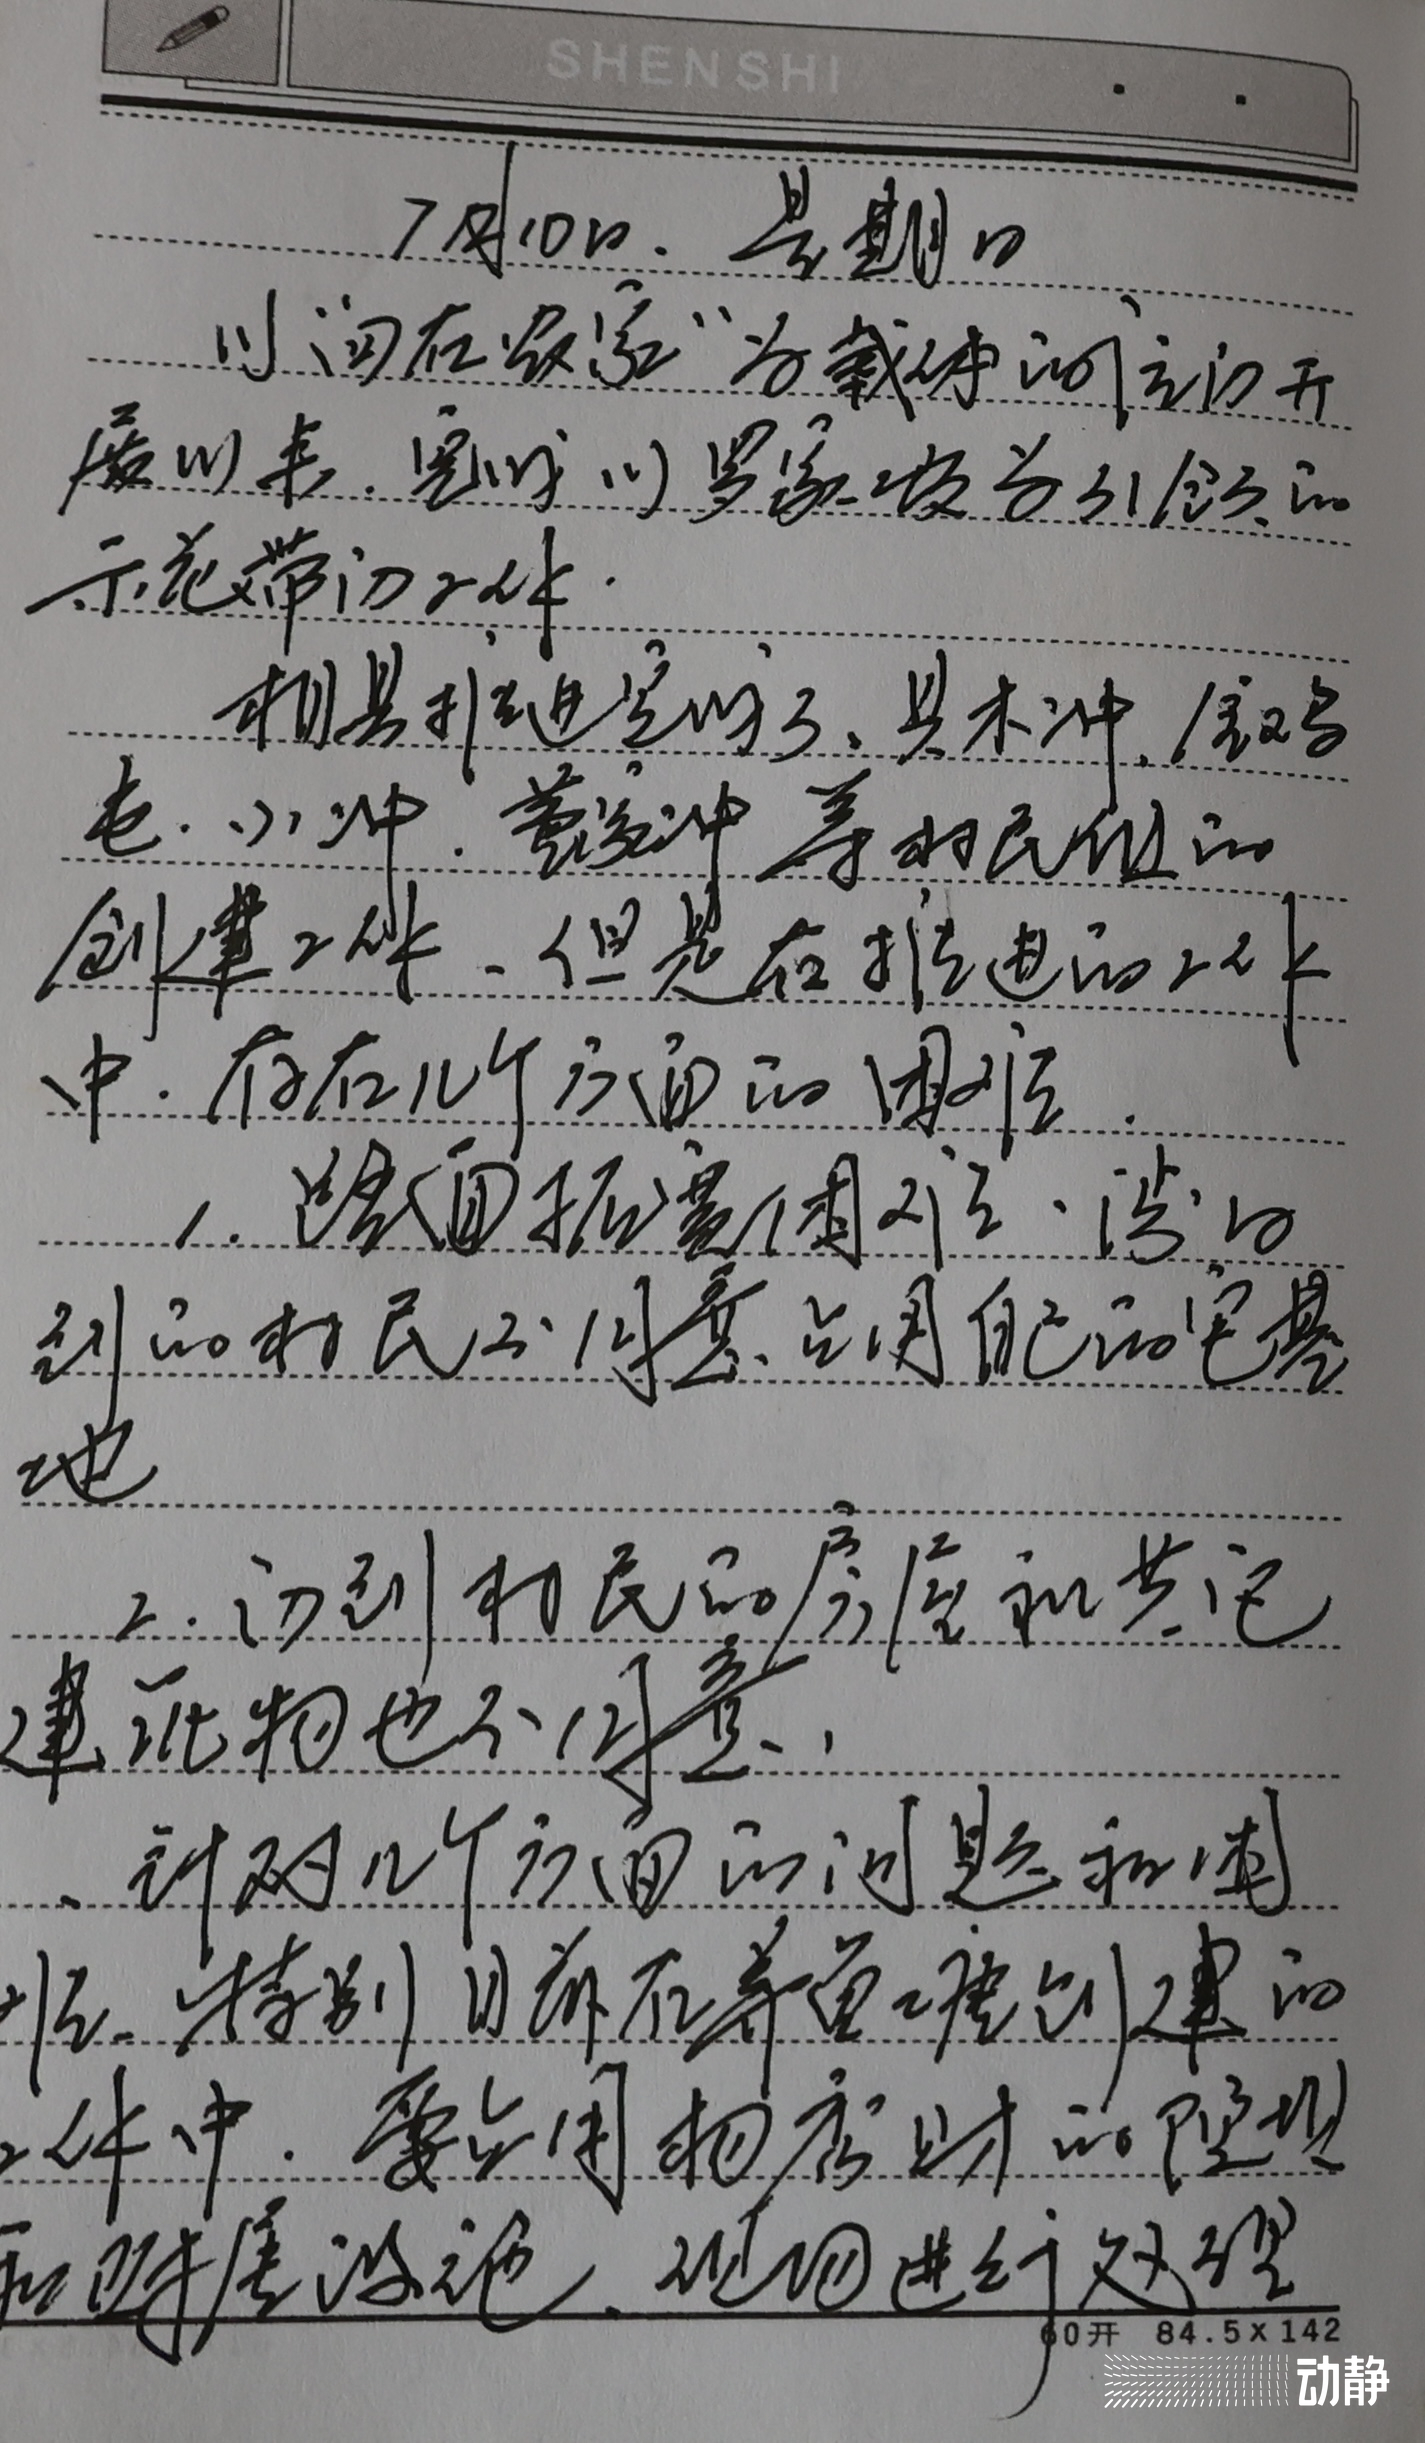 SHENSHI
7月10日. 星期日
以“酒在农家”为载体的活动开
展以来. 完成以罗家坡为引领的
示范带动工作.
相具推进完成了、具木冲、
屯. 小冲. 冲等村民组的
创建工作、但是在推进的工作
中. 存在几个方面的困难.
1. 路面拓宽困难、涉及
到的村民不同意占用自己的宅基
地
2. 动到村民的房屋和其它
建筑物也不同意.
针对几个方面的问题和困
难. 特别目前在养鱼塘创建的
工作中. 要占用杨秀财的院坝
和附属设施、现场进行处理
60开 84.5x142
动静